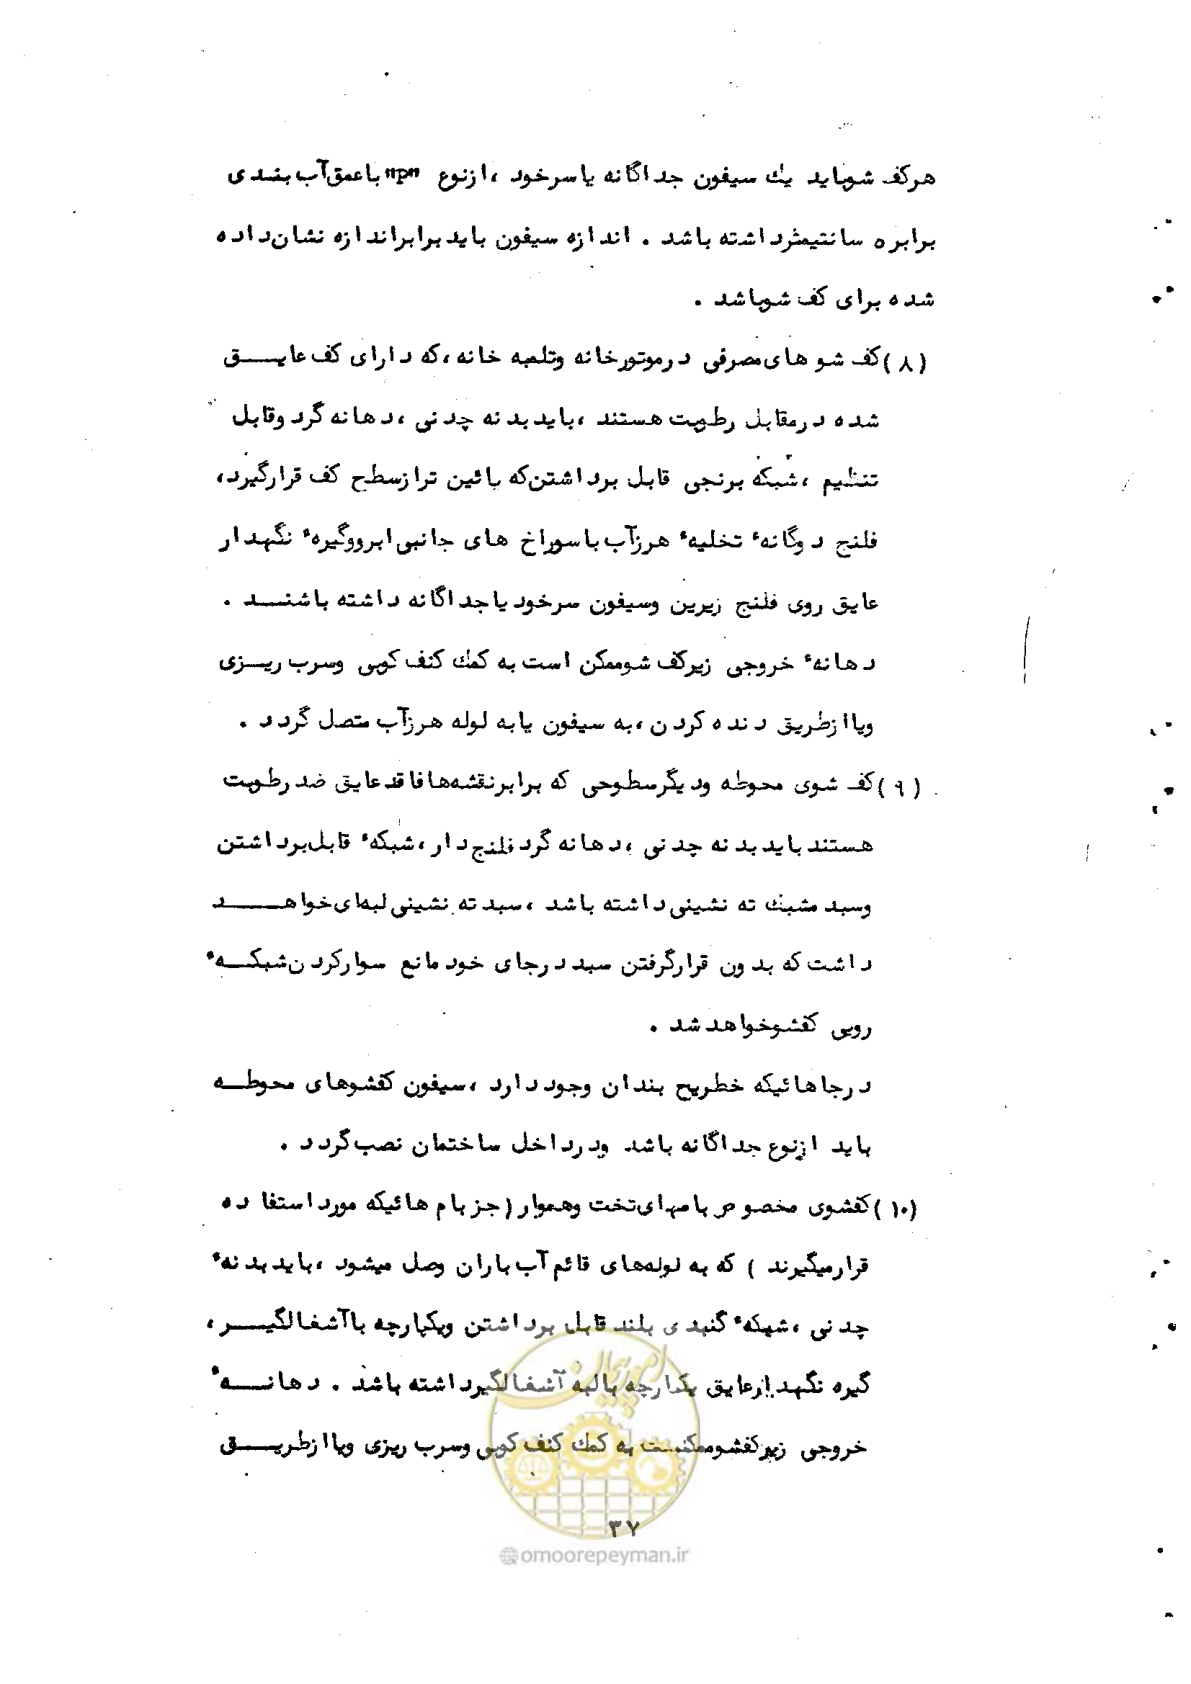 هرکف شوباید یك سیفون جداگانه یا سرخود ،ازنوع "p" باعمق آب بندی
برابر ه سانتیمتر داشته باشد . اندازه سیفون باید برابراندازه نشان داده
شده برای کف شوباشد .
(۸) کف شو های مصرفی درموتورخانه وتلمبه خانه ،که دارای کف عایق
شده درمقابل رطوبت هستند ،باید بدنه چدنی ،دهانه گرد وقابل
تنظیم ،شبکه برنجی قابل برداشتن که پائین تر ازسطح کف قرارگیرد،
فلنج دوگانهٔ تخلیهٔ هرزآب باسوراخ های جانبی ابرووگیرهٔ نگهدار
عایق روی فلنج زیرین وسیفون سرخود یاجداگانه داشته باشند .
دهانهٔ خروجی زیرکف شوممکن است به کمك کنف کوبی وسرب ریزی
ویا ازطریق دنده کردن ،به سیفون یابه لوله هرزآب متصل گردد .
(۹) کف شوی محوطه ودیگرسطوحی که برابرنقشه‌ها فاقد عایق ضد رطوبت
هستند باید بدنه چدنی ،دهانه گرد فلنج دار ،شبکهٔ قابل برداشتن
وسبد مشبك ته نشینی داشته باشد ،سبد ته نشینی لبه‌ای خواهد
داشت که بدون قرارگرفتن سبد درجای خود مانع سوارکردن شبکهٔ
رویی کفشوخواهد شد .
درجاهائیکه خطریخ بندان وجود دارد ،سیفون کفشوهای محوطه
باید ازنوع جداگانه باشد ودرداخل ساختمان نصب گردد .
(۱۰) کفشوی مخصوص بامهای تخت وهموار (جز بام هائیکه مورد استفاده
قرارمیگیرند ) که به لوله‌های قائم آب باران وصل میشود ،باید بدنهٔ
چدنی ،شبکهٔ گنبدی بلند قابل برداشتن ویکپارچه باآشغالگیر ،
گیره نگهدارعایق یکپارچه بالبه آشغالگیر داشته باشد . دهانهٔ
خروجی زیرکفشوممکنست به کمك کنف کوبی وسرب ریزی ویا ازطریق
امور پیمان
۳۷
@omoorepeyman.ir